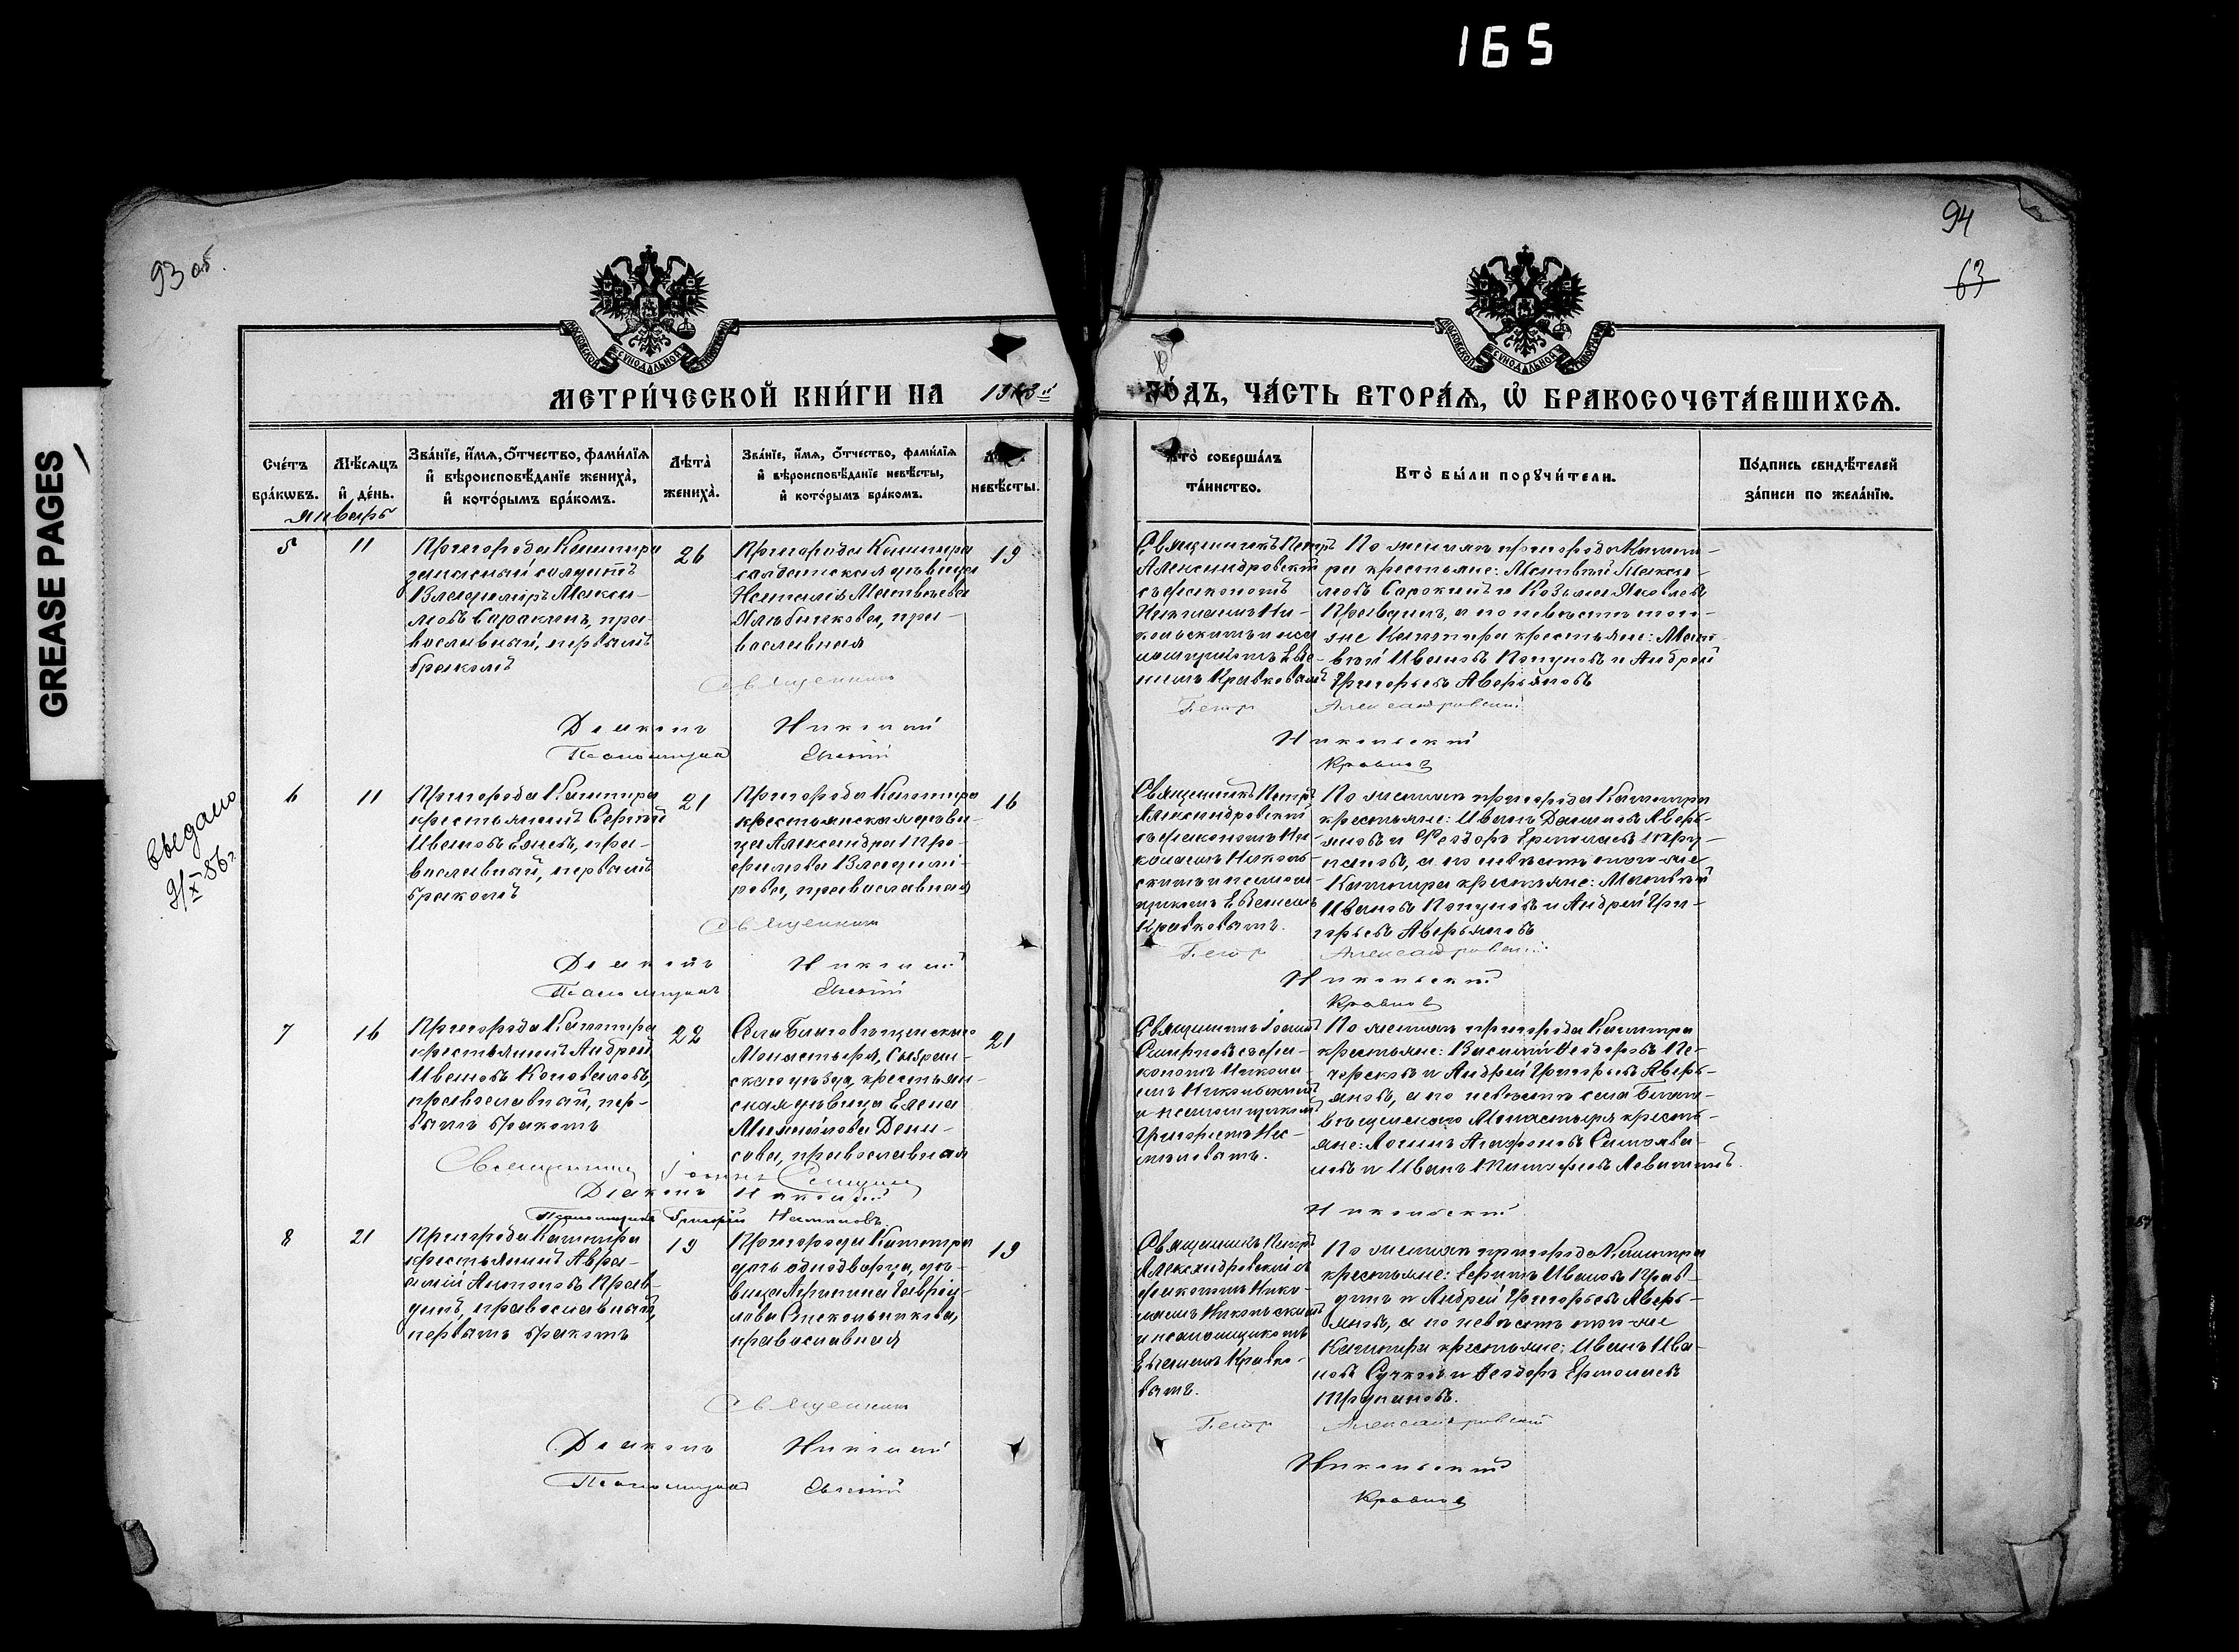 165
94
63
93 об.
GREASE PAGES
МЕТРИ́ЧЕСКОЙ КНИ́ГИ НА
ГО́ДЪ, ЧА́СТЬ ВТОРА́Я, Ѽ БРАКОСОЧЕТА́ВШИХСЯ.
Сче́тъ бра́кωвъ.
Мѣ́сяцъ и҆ де́нь.
Зва́нїе, и҆́мя, ѻ҆́тчество, фами́лїя и҆ вѣроисповѣ́данїе жениха̀, и҆ кото́рымъ бра́комъ.
Лѣта̀ жениха̀.
Зва́нїе, и҆́мя, ѻ҆́тчество, фами́лїя и҆ вѣроисповѣ́данїе невѣ́сты, и҆ кото́рымъ бра́комъ.
невѣ́сты.
Кто̀ соверша́лъ та́инство.
Кто̀ бы́ли порꙋчи́тели.
По́дпись свидѣ́телей за́писи по жела́нїю.
Январь
5
11
Пригорода Кашпира
запасный солдатъ
Владиміръ Макси-
мовъ Сорокинъ, пра-
вославный, первымъ
бракомъ
26
Пригорода Кашпира
солдатская дѣвица
Наталія Матвѣева
Хлѣбникова, пра-
вославная
19
Священникъ Петръ
Александровскій
съ діакономъ
Николаемъ Ни-
кольскимъ и пса-
ломщикомъ Евге-
ніемъ
По женихѣ пригорода Кашпи-
ра крестьяне: Матвей Макси-
мовъ Сорокинъ и Козьма Яковлевъ
Правдинъ, а по невѣстѣ того-
же Кашпира крестьяне: Мат-
вей Ивановъ и Андрей
Григорьевъ Аверьяновъ
Священникъ
Петръ Александровскій
Діаконъ Николай Никольскій
Псаломщикъ Евгеній
6
11
Пригорода Кашпира
крестьянинъ Сергѣй
Ивановъ, пра-
вославный, первымъ
бракомъ
21
Пригорода Кашпира
крестьянская дѣви-
ца Александра Тро-
фимова Владимі-
рова, православная
16
Священникъ Петръ
Александровскій
съ діакономъ Ни-
колаемъ Николь-
скимъ и псалом-
щикомъ Евгеніемъ
По женихѣ пригорода Кашпира
крестьяне: Иванъ Даниловъ Аверь-
яновъ и Ѳеодоръ Ермолаевъ Тру-
пановъ, а по невѣстѣ того-же
Кашпира крестьяне: Матвей
Ивановъ и Андрей Гри-
горьевъ Аверьяновъ
Священникъ
Петръ Александровскій
Діаконъ Николай Никольскій
Псаломщикъ Евгеній
введано
7
16
Пригорода Кашпира
крестьянинъ Андрей
Ивановъ Коноваловъ,
православный, пер-
вымъ бракомъ
22
Села Благовѣщенскаго
Монастыря, Сызран-
скаго уѣзда, крестьян-
ская дѣвица Елена
Михайлова Дени-
сова, православная
21
Священникъ Іоаннъ
Смирновъ съ діа-
кономъ Никола-
емъ Никольскимъ
и псаломщикомъ
Григоріемъ
По женихѣ пригорода Кашпира
крестьяне: Василій Ѳеодоровъ Пе-
черсковъ и Андрей Григорьевъ Аверь-
яновъ, а по невѣстѣ села Благо-
вѣщенскаго Монастыря кресть-
яне: Логинъ Агафоновъ
и Иванъ
Священникъ Іоаннъ Смирновъ
Діаконъ Николай
Никольскій
Псаломщикъ Григорій
8
21
Пригорода Кашпира
крестьянинъ Авра-
амій Антоновъ Прав-
динъ, православный,
первымъ бракомъ
19
Пригорода Кашпира
дочь однодворца, дѣ-
вица Агрипина Гаврі-
лова Стекольникова,
православная
19
Священникъ Петръ
Александровскій съ
діакономъ Нико-
лаемъ Никольскимъ
и псаломщикомъ
По женихѣ пригорода Кашпира
крестьяне: Ефимъ Ивановъ Прав-
динъ и Андрей Григорьевъ Аверь-
яновъ, а по невѣстѣ того-же
Кашпира крестьяне: Иванъ Ива-
новъ Сучковъ и Ѳеодоръ Ермолаевъ
Трупановъ.
Священникъ
Петръ Александровскій
Діаконъ Николай
Никольскій
Псаломщикъ Евгеній